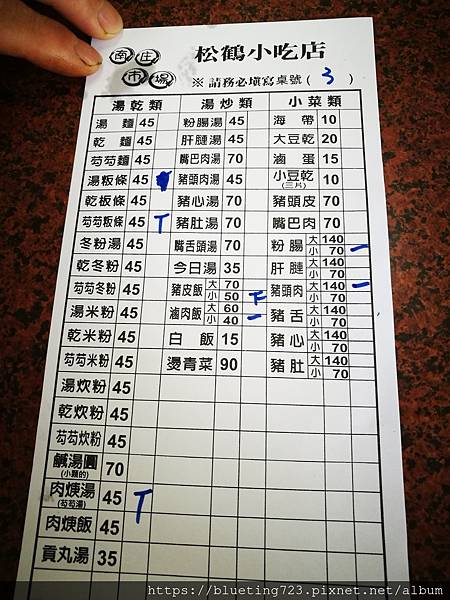 南庄市場
松鶴小吃店
※ 請務必填寫桌號 ( 3 )
湯乾類 湯炒類 小菜類
湯麵 45 粉腸湯 45 海帶 10
乾麵 45 肝腱湯 45 大豆乾 20
芶芶麵 45 嘴巴肉湯 70 滷蛋 15
湯粄條 45 豬頭肉湯 45 小豆乾 (三片) 10
乾板條 45 豬心湯 70 豬頭皮 70
芶芶粄條 45 T 豬肚湯 70 嘴巴肉 70
冬粉湯 45 嘴舌頭湯 70 粉腸 大 140 小 70 一
乾冬粉 45 今日湯 35 肝腱 大 140 小 70
芶芶冬粉 45 豬皮飯 大 70 小 50 下 豬頭肉 大 140 小 70 一
湯米粉 45 滷肉飯 大 60 小 40 一 豬舌 大 140 小 70
乾米粉 45 白飯 15 豬心 大 140 小 70
芶芶米粉 45 燙青菜 90 豬肚 大 140 小 70
湯炊粉 45
乾炊粉 45
芶芶炊粉 45
鹹湯圓 (小顆的) 70
肉焿湯 (芶芶湯) 45 T
肉焿飯 45
貢丸湯 35
https://blueting723.pixnet.net/album